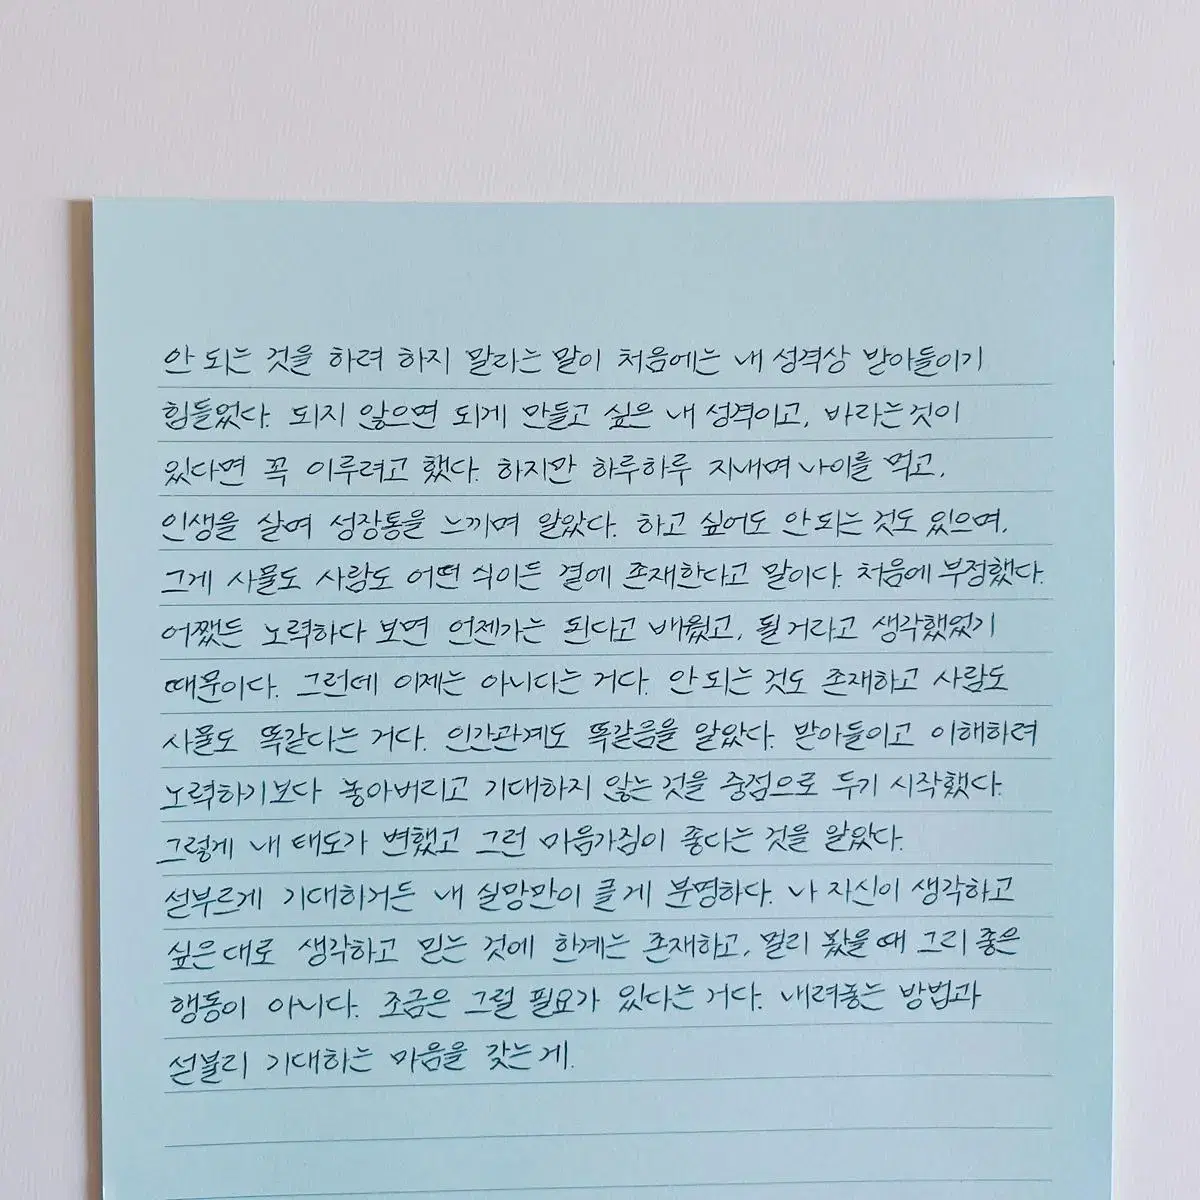 안 되는 것을 하려 하지 말라는 말이 처음에는 내 성격상 받아들이기
힘들었다. 되지 않으면 되게 만들고 싶은 내 성격이고, 바라는 것이
있다면 꼭 이루려고 했다. 하지만 하루하루 지내며 나이를 먹고,
인생을 살며 성장통을 느끼며 알았다. 하고 싶어도 안 되는 것도 있으며,
그게 사물도 사람도 어떤 식이든 곁에 존재한다고 말이다. 처음에 부정했다.
어쨌든 노력하다 보면 언젠가는 된다고 배웠고, 될 거라고 생각했었기
때문이다. 그런데 이제는 아니다는 거다. 안 되는 것도 존재하고 사람도
사물도 똑같다는 거다. 인간관계도 똑같음을 알았다. 받아들이고 이해하려
노력하기보다 놓아버리고 기대하지 않는 것을 중점으로 두기 시작했다.
그렇게 내 태도가 변했고 그런 마음가짐이 좋다는 것을 알았다.
섣부르게 기대하거든 내 실망만이 클 게 분명하다. 나 자신이 생각하고
싶은 대로 생각하고 믿는 것에 한계는 존재하고, 멀리 봤을 때 그리 좋은
행동이 아니다. 조금은 그럴 필요가 있다는 거다. 내려놓는 방법과
섣불리 기대하는 마음을 갖는 게.